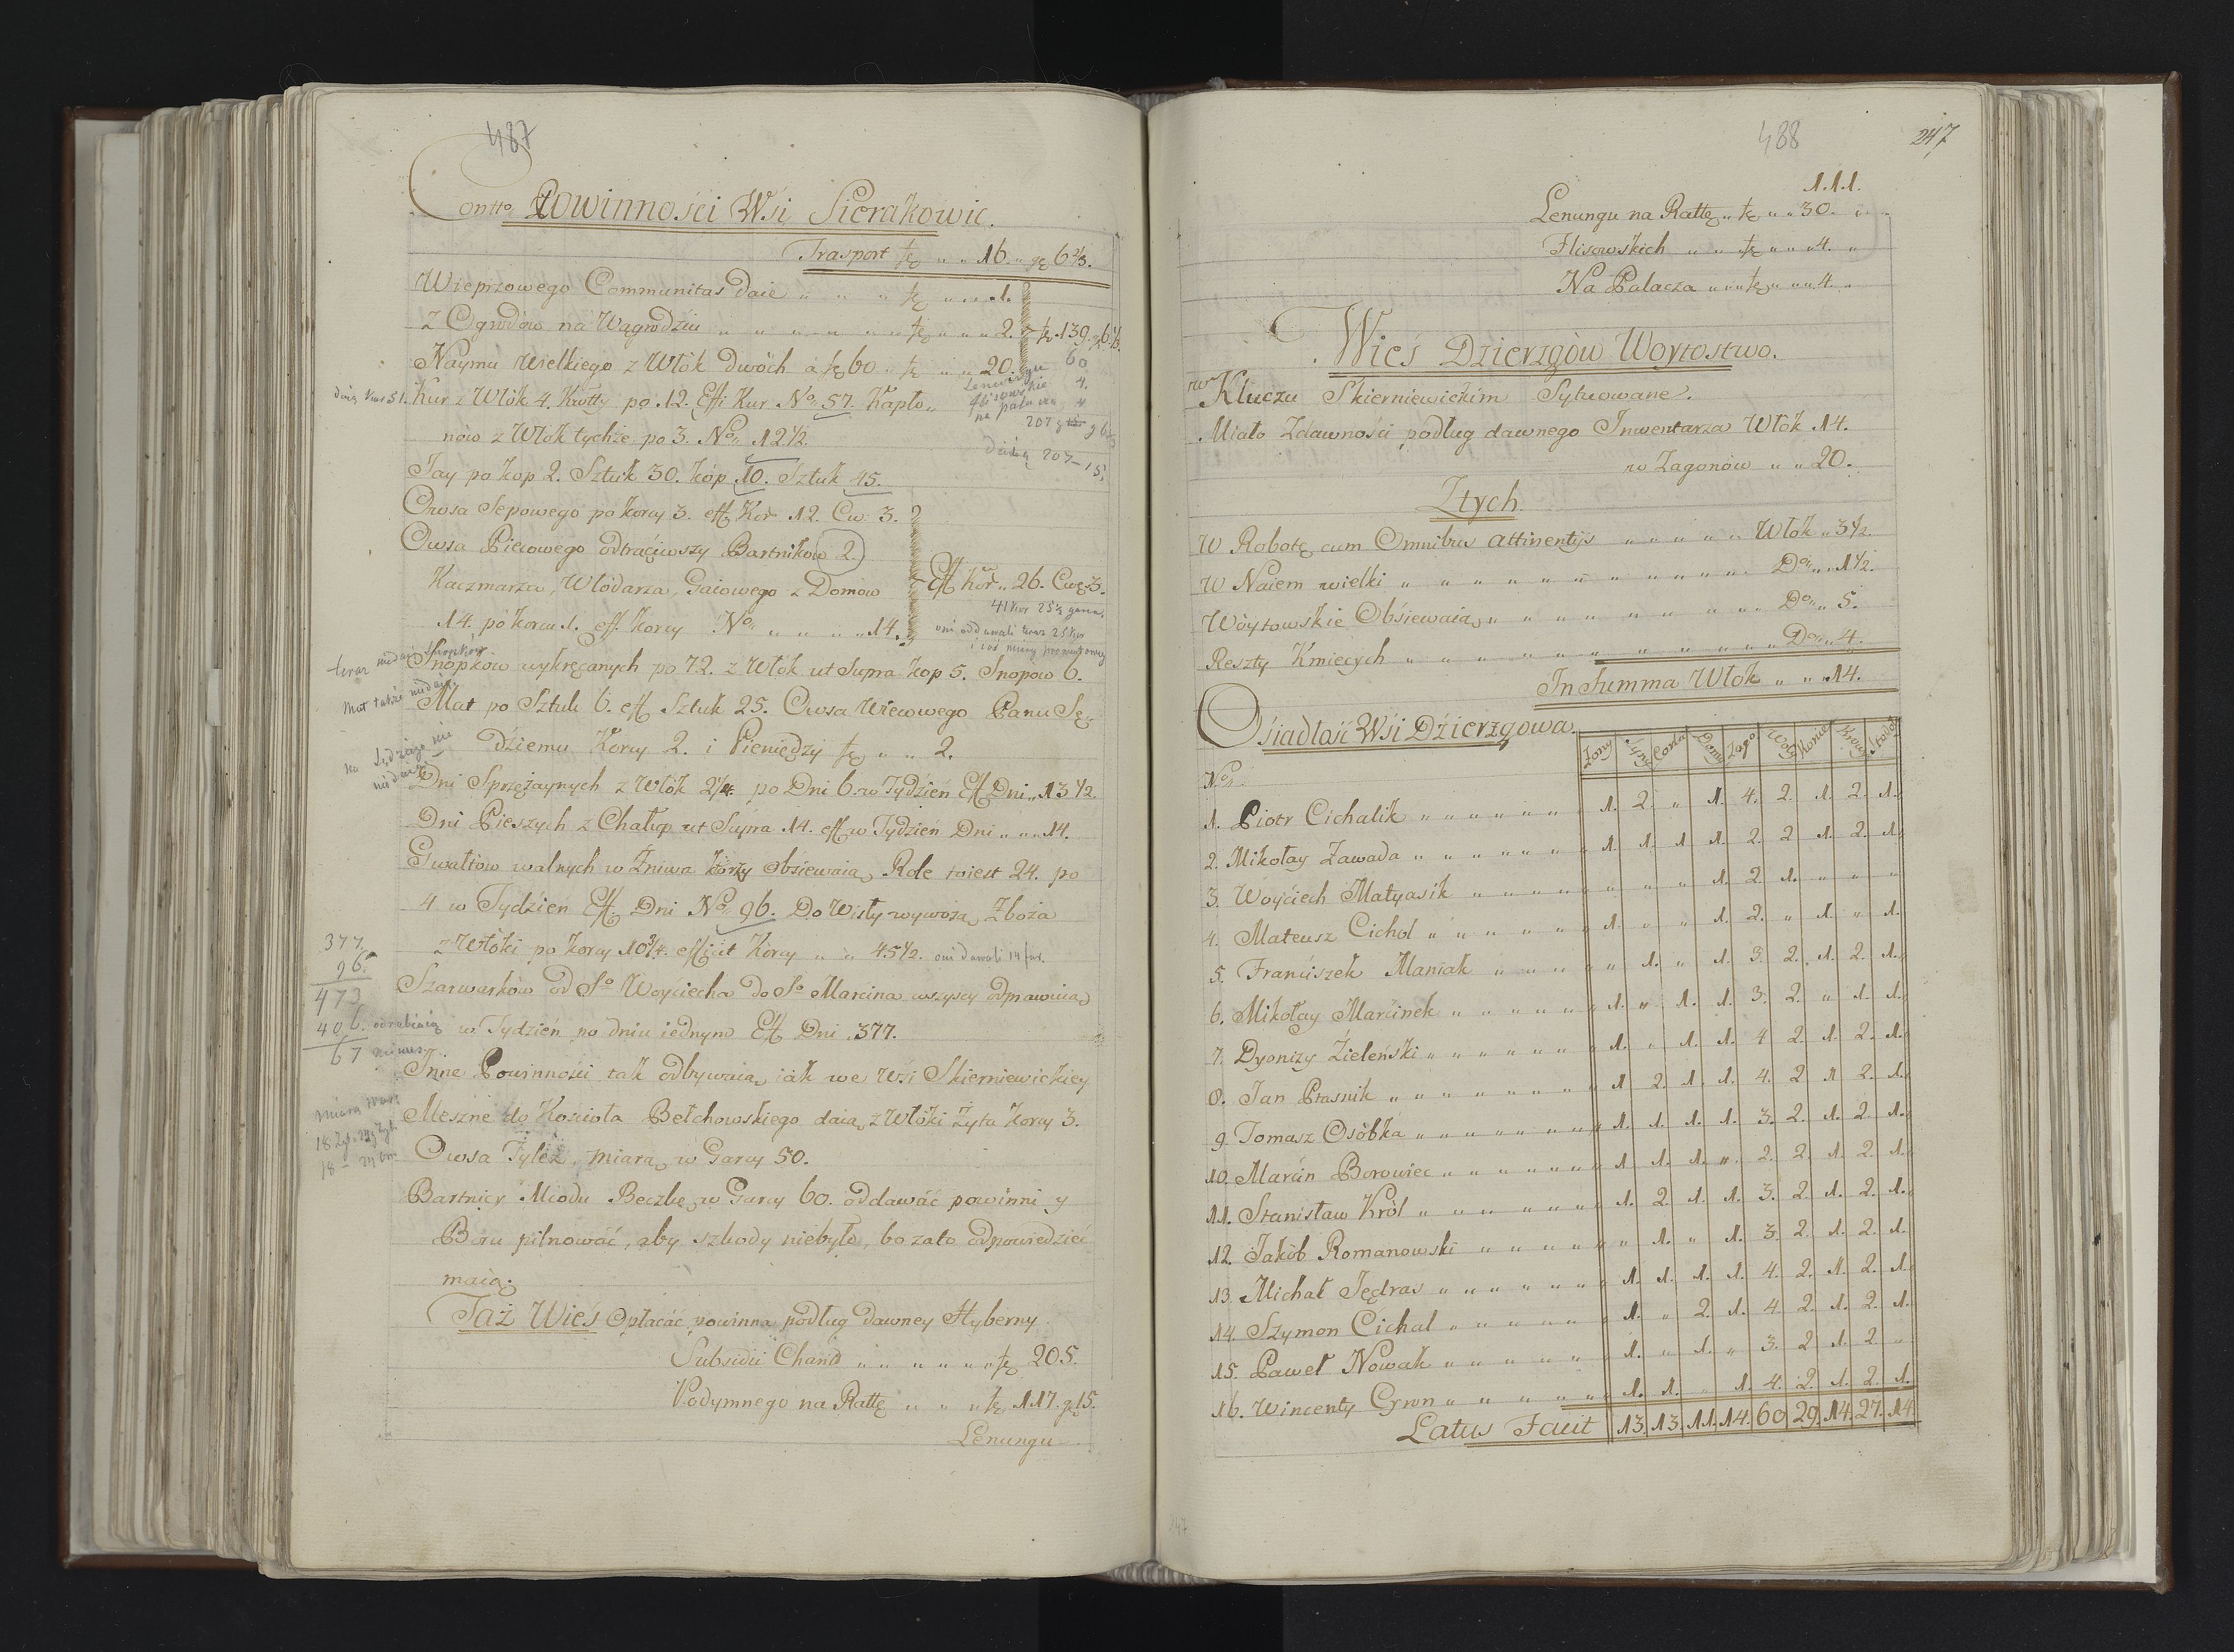 487
Contto Powinności Wsi Sierakowic.
Trasport fl „ „ 16. „ g 6 2/3.
Wieprzowego Communitas daie „ „ „ fl „ „ „ 1.
z Ogrodów na Wągrodziu „ „ „ „ „ fl „ „ „ 2.
fl. 139. g 6
Naymu Wielkiego z Włók dwóch á fl 60 „ fl „ „ 20.
60
4.
4
Kur z Włók 4. Kwtty po 12. Effi Kur No 57. Kapło„
207
nów z Włok tychże po 3. No 12 1/2.
207 - 15.
Jay po kop 2. Sztuk 30. kop 10. Sztuk 45.
Owsa Sepowego po korcy 3. eff Kor 12. Cw. 3.
Owsa Piecowego odtrąciwszy Bartników 2
Kaczmarza, Włodarza, Gaiowego z Domow
Eff kor „ 26. Cwę 3.
14. po korcu 1. eff. korcy No „ „ „ „ 14.
Snopków wykręcanych po 72. z Włók ut Supra kop 5. Snopow 6.
Mat po Sztuk 6. eff Sztuk 25. Owsa Wiecowego Panu Sę„
dziemu Korcy 2. i Pieniędzy fl „ „ 2.
Dni Sprzężaynych z Włók 2 1/4. po Dni 6. w Tydzień Eff Dni „ 13 1/2.
Dni Pieszych z Chałup ut Supra 14. eff w Tydzień Dni „ „ „ 14.
Gwałtow walnych w Żniwa którzy obsiewaią Role to iest 24. po
4 w Tydzien Eff. Dni No 96. Do Wisły wywożą Zboża
z Włóki po korcy 10 3/4. efficit Korcy „ „ 45 1/2.
377.
96.
473
406. odrabiaią
67
Szarwarków od So Woyciecha do So Marcina wszyscy odprawuią
w Tydzień po dniu iednym Eff Dni 377.
Inne Powinności tak odbywaią iak we Wsi Skierniewickiey
Meszne do Kościoła Bełchowskiego daią z Włóki Żyta korcy 3.
Owsa Tyleż, miarą w Garcy 50.
Bartnicy Miodu Beczkę w Garcy 60. oddawać powinni y
Boru pilnować, aby szkody niebyło, bo zato odpowiedzieć
maią.
Taż Wieś Opłacać powinna podług dawney Hyberny
Subsidii Charit „ „ „ „ „ fl 205.
Podymnego na Rattę „ „ „ fl 117. g 15.
Lenungu
488
247
1.1.1.
Lenungu na Rattę „ fl „ „ 30.
Flisowskich „ „ fl „ „ „ 4. „
Na Palacza „ „ „ fl „ „ „ 4 „
Wieś Dzierzgòw Woytostwo.
w Kluczu Skierniewickim Sytuowane.
Miało Zdawności podług dawnego Inwentarza Włók 14.
w Zagonów „ „ 20.
Ztych
W Robotę cum Omnibus attinentijs „ „ „ „ „ Włok „ 3 1/2.
W Naiem wielki „ „ „ „ „ „ „ „ „ „ „ Do „ „ 1 1/2.
Wòytowskie Obsiewaią „ „ „ „ „ „ „ „ „ „ Do „ „ 5.
Reszty Kmiecych „ „ „ „ „ „ „ „ „ „ „ Do „ „ 4.
In Summa Włók „ „ „ 14.
Osiadłość Wsi Dzierzgowa.
Żony Syny Corki Domy Zago Woły Konie Krow
No
1. Piotr Cichalik „ „ „ „ „ „ 1. 2. „ 1. 4. 2. 1. 2. 1.
2. Mikołay Zawada „ „ „ „ „ „ 1. 1. 1 1. 2. 2 1. 2. 1
3. Woyciech Matyasik „ „ „ „ „ „ „ „ 1. 2. 1. „ „ „
4. Mateusz Cichol „ „ „ „ „ „ 1. „ „ 1. 2. „ 1. „ 1.
5. Franciszek Maniak „ „ „ „ „ „ 1. „ 1. 3. 2. 1. 2. 1.
6. Mikołay Marcinek „ „ „ „ „ „ 1. „ 1. 1. 3. 2. „ 1. 1.
7. Dyonizy Zieleński „ „ „ „ „ „ 1. „ 1. 1. 4 2. 1. 2. 1.
8. Jan Prasnik „ „ „ „ „ „ „ 1 2. 1. 1. 4. 2 1 2. 1.
9. Tomasz Osóbka „ „ „ „ „ „ „ 1. 1. 1. 1. 3. 2. 1. 2. 1.
10. Marcin Borowiec „ „ „ „ „ „ 1. 1. 1. „ 2. 2. 1. 2. 1.
11. Stanisław Król „ „ „ „ „ „ „ 1. 2. 1. 1. 3. 2. 1. 2. 1.
12. Jakób Romanowski „ „ „ „ „ „ 1. „ 1. 3. 2. 1. 2. 1.
13. Michał Jędras „ „ „ „ „ „ „ 1. 1. 1. 1. 4. 2. 1. 2. 1.
14. Szymon Cichal „ „ „ „ „ „ 1. „ 2. 1. 4. 2. 1. 2. 1.
15. Paweł Nowak „ „ „ „ „ „ 1. „ 1. „ 3. 2 1. 2. „
16. Wincenty Gzwn „ „ „ „ „ „ 1. 1. „ 1. 4. 2. 1. 2. 1.
Latus Facit 13. 13. 11. 14. 60 29. 14. 27. 14